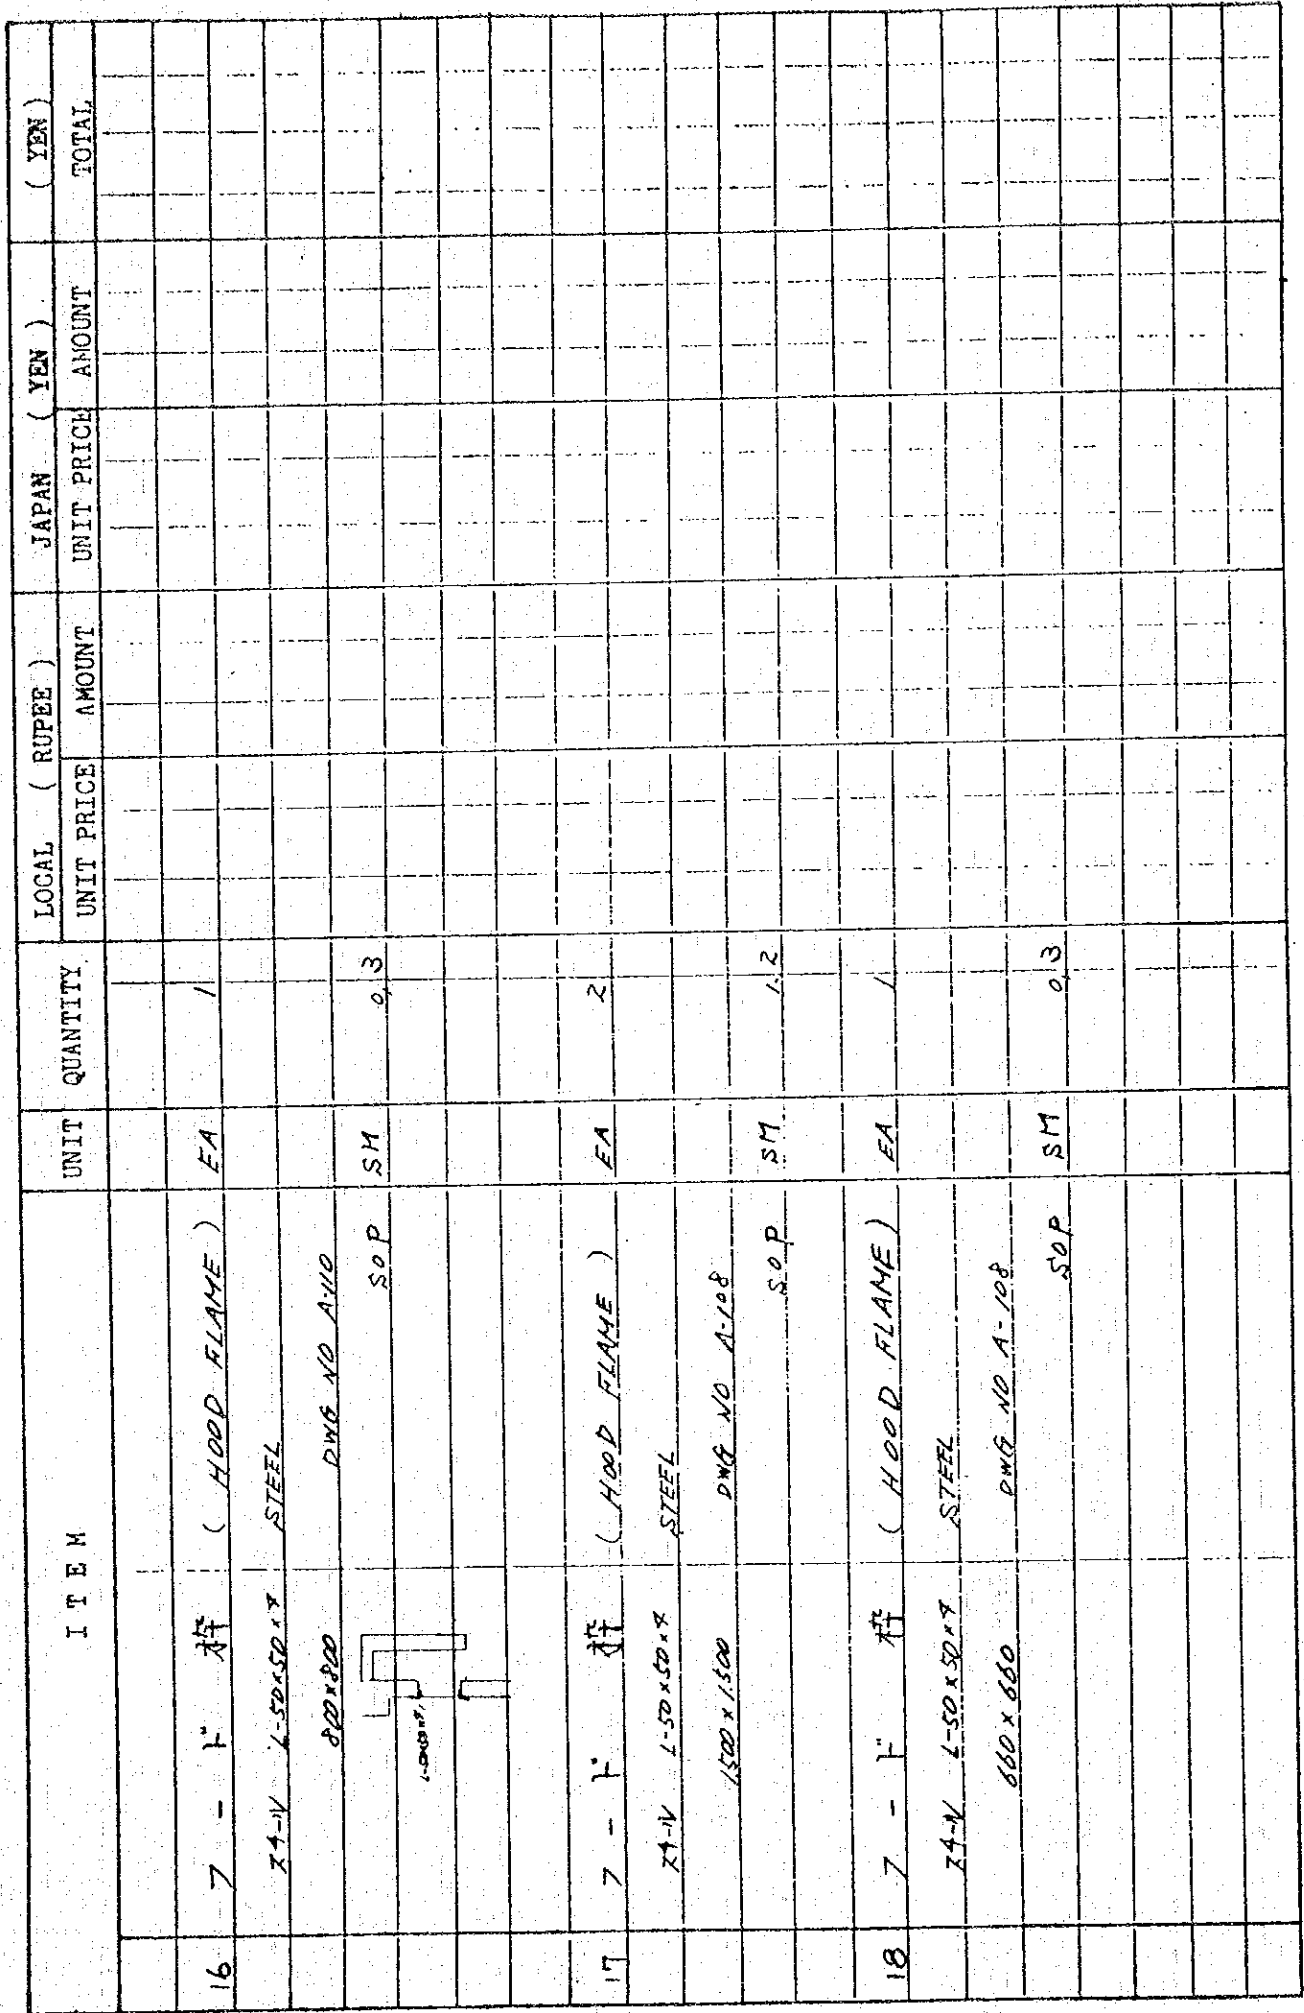 I T E M UNIT QUANTITY LOCAL ( RUPEE ) JAPAN ( YEN ) ( YEN )
UNIT PRICE AMOUNT UNIT PRICE AMOUNT TOTAL
16 フ - ド 枠 ( HOOD FLAME ) EA 1
スチール L-50×50×4 STEEL
800×800 DWG NO A-110
SOP SM 0,3
17 フ - ド 枠 ( HOOD FLAME ) EA 2
スチール L-50×50×4 STEEL
1,500×1,500 DWG NO A-108
SOP SM 1.2
18 フ - ド 枠 ( HOOD FLAME ) EA 1
スチール L-50×50×4 STEEL
660×660 DWG NO A-108
SOP SM 0,3